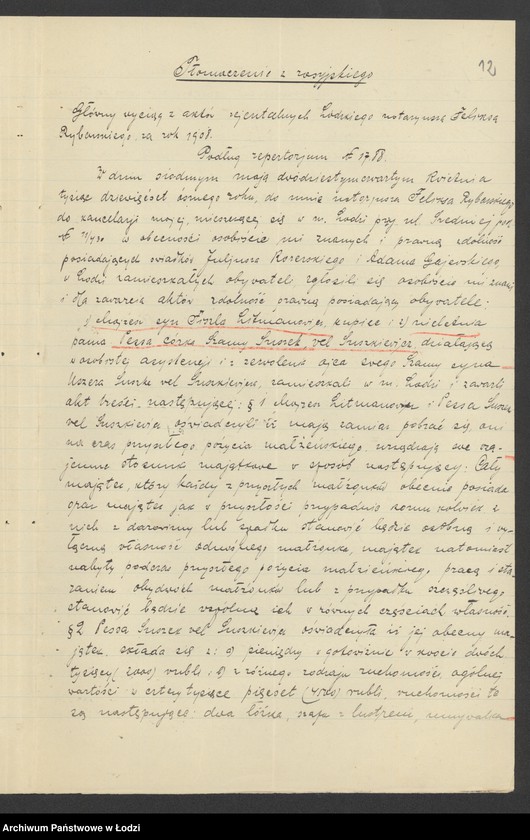 12
Tłomaczenie z rosyjskiego
Główny wyciąg z aktów rejentalnych Łódzkiego notarjusza Feliksa
Rybarskiego, za rok 1908.
Podług repertorjum № 1788.
W dniu siódmym maja dwudziestymczwartym kwietnia
tysiąc dziewięćset ósmego roku, do mnie notarjusza Feliksa Rybarskiego,
do kancelarji mojej, mieszczącej się w m. Łodzi przy ul. Średniej pod
№ w obecności osobiście mi znanych i prawną zdolność
posiadających świadków Juljusza Rozerskiego i Adama Gajewskiego,
w Łodzi zamieszkałych obywateli, zgłosili się osobiście mi znani
i dla zawarcia aktów zdolność prawną posiadający obywatele:
1) Majzesz syn Fiszla Litmanowicz, kupiec i 2) nieletnia
panna Pessa córka Szamy Snorek vel Snorkiewicz, działająca
w osobistej asystencji i z zezwolenia ojca swego Szamy syna
Moszera Snorka vel Snorkiewicza, zamieszkali w m. Łodzi i zawarli
akt treści następującej: § 1 Majzesz Litmanowicz i Pessa Snorek
vel Snorkiewicz, oświadczyli iż mają zamiar pobrać się, oni
na czas przyszłego pożycia małżeńskiego, urządzają swe wza-
jemne stosunki majątkowe w sposób następujący: Cały
majątek, który każdy z przyszłych małżonków obecnie posiada
oraz majątek jak w przyszłości przypadnie komu kolwiek z
nich z darowizny lub spadku stanowić będzie osobną i wy-
łączną własność odnośnego małżonka, majątek natomiast
nabyty podczas przyszłego pożycia małżeńskiego, pracą i sta-
raniem obydwóch małżonków lub z przypadku szczęśliwego
stanowić będzie wspólną ich w równych częściach własność.
§ 2 Pessa Snorek vel Snorkiewicz oświadczyła iż jej obecny ma-
jątek składa się z: a) pieniędzy w gotowiźnie w kwocie dwóch
tysięcy (2000) rubli i b) z różnego rodzaju ruchomości, ogólnej
wartości w cztery tysiące pięćset (4500) rubli, ruchomości te
są następujące: dwa łóżka, szafa z lustrem, umywalka
Archiwum Państwowe w Łodzi